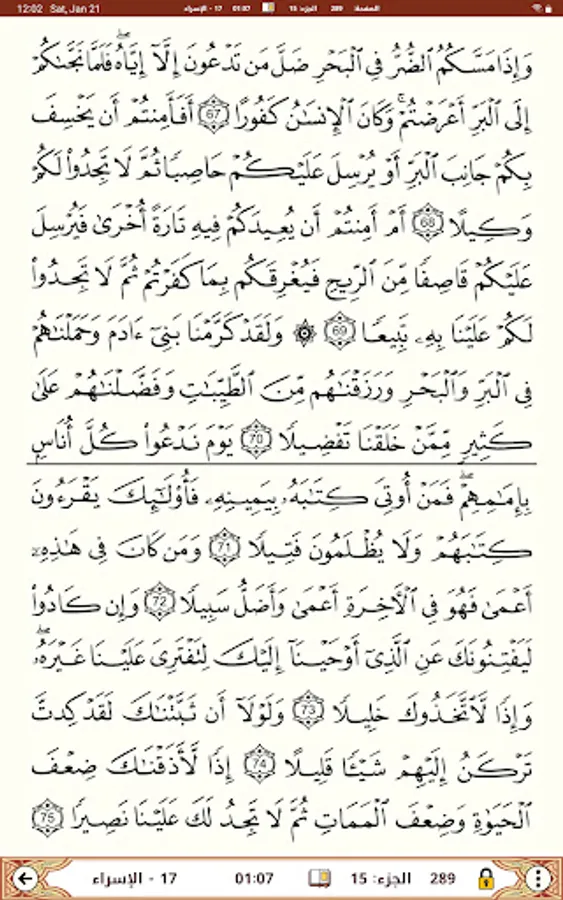 12:02 Sat, Jan 21 17 - الإسراء 01:07 الجزء: 15 289 الصفحة:
وَإِذَا مَسَّكُمُ ٱلضُّرُّ فِي ٱلۡبَحۡرِ ضَلَّ مَن تَدۡعُونَ إِلَّآ إِيَّاهُۖ فَلَمَّا نَجَّىٰكُمۡ
إِلَى ٱلۡبَرِّ أَعۡرَضۡتُمۡۚ وَكَانَ ٱلۡإِنسَٰنُ كَفُورًا 67 أَفَأَمِنتُمۡ أَن يَخۡسِفَ
بِكُمۡ جَانِبَ ٱلۡبَرِّ أَوۡ يُرۡسِلَ عَلَيۡكُمۡ حَاصِبٗا ثُمَّ لَا تَجِدُواْ لَكُمۡ
وَكِيلًا 68 أَمۡ أَمِنتُمۡ أَن يُعِيدَكُمۡ فِيهِ تَارَةً أُخۡرَىٰ فَيُرۡسِلَ
عَلَيۡكُمۡ قَاصِفٗا مِّنَ ٱلرِّيحِ فَيُغۡرِقَكُم بِمَا كَفَرۡتُمۡ ثُمَّ لَا تَجِدُواْ
لَكُمۡ عَلَيۡنَا بِهِۦ تَبِيعٗا 69 ۞ وَلَقَدۡ كَرَّمۡنَا بَنِيٓ ءَادَمَ وَحَمَلۡنَٰهُمۡ
فِي ٱلۡبَرِّ وَٱلۡبَحۡرِ وَرَزَقۡنَٰهُم مِّنَ ٱلطَّيِّبَٰتِ وَفَضَّلۡنَٰهُمۡ عَلَىٰ
كَثِيرٖ مِّمَّنۡ خَلَقۡنَا تَفۡضِيلٗا 70 يَوۡمَ نَدۡعُواْ كُلَّ أُنَاسِۭ
بِإِمَٰمِهِمۡۖ فَمَنۡ أُوتِيَ كِتَٰبَهُۥ بِيَمِينِهِۦ فَأُوْلَٰٓئِكَ يَقۡرَءُونَ
كِتَٰبَهُمۡ وَلَا يُظۡلَمُونَ فَتِيلٗا 71 وَمَن كَانَ فِي هَٰذِهِۦٓ
أَعۡمَىٰ فَهُوَ فِي ٱلۡأٓخِرَةِ أَعۡمَىٰ وَأَضَلُّ سَبِيلٗا 72 وَإِن كَادُواْ
لَيَفۡتِنُونَكَ عَنِ ٱلَّذِيٓ أَوۡحَيۡنَآ إِلَيۡكَ لِتَفۡتَرِيَ عَلَيۡنَا غَيۡرَهُۥۖ
وَإِذٗا لَّٱتَّخَذُوكَ خَلِيلٗا 73 وَلَوۡلَآ أَن ثَبَّتۡنَٰكَ لَقَدۡ كِدتَّ
تَرۡكَنُ إِلَيۡهِمۡ شَيۡـٔٗا قَلِيلًا 74 إِذٗا لَّأَذَقۡنَٰكَ ضِعۡفَ
ٱلۡحَيَوٰةِ وَضِعۡفَ ٱلۡمَمَاتِ ثُمَّ لَا تَجِدُ لَكَ عَلَيۡنَا نَصِيرٗا 75
17 - الإسراء 01:07 الجزء: 15 289